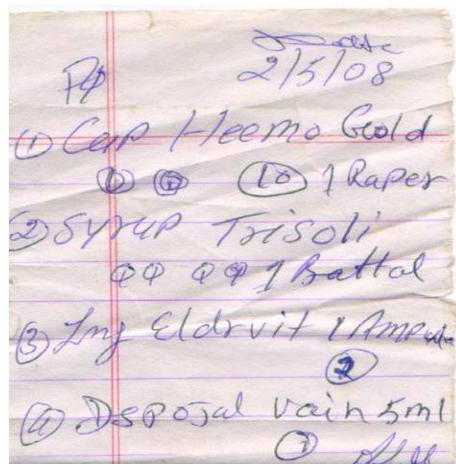 2/5/08
① Cap Heemo Gold
⑩ 1 Raper
② Syrup Trisoli
1 Battal
③ Inj Eldrvit 1 Ampule
②
④ Dsposal vain 5ml
①